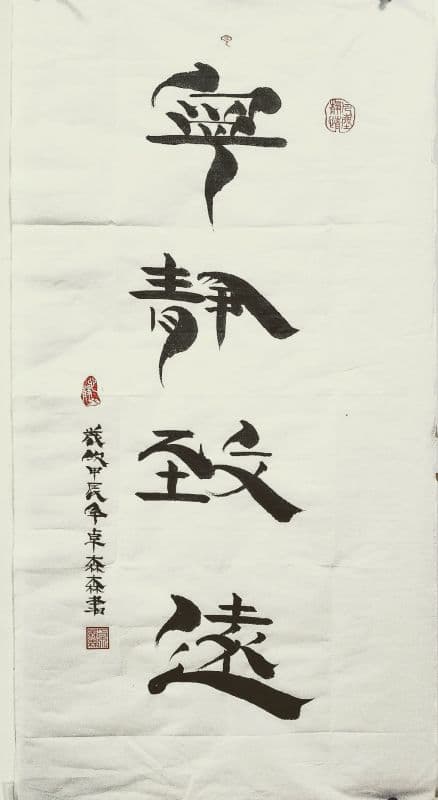 寧靜致遠
歲次甲辰年卓森森書